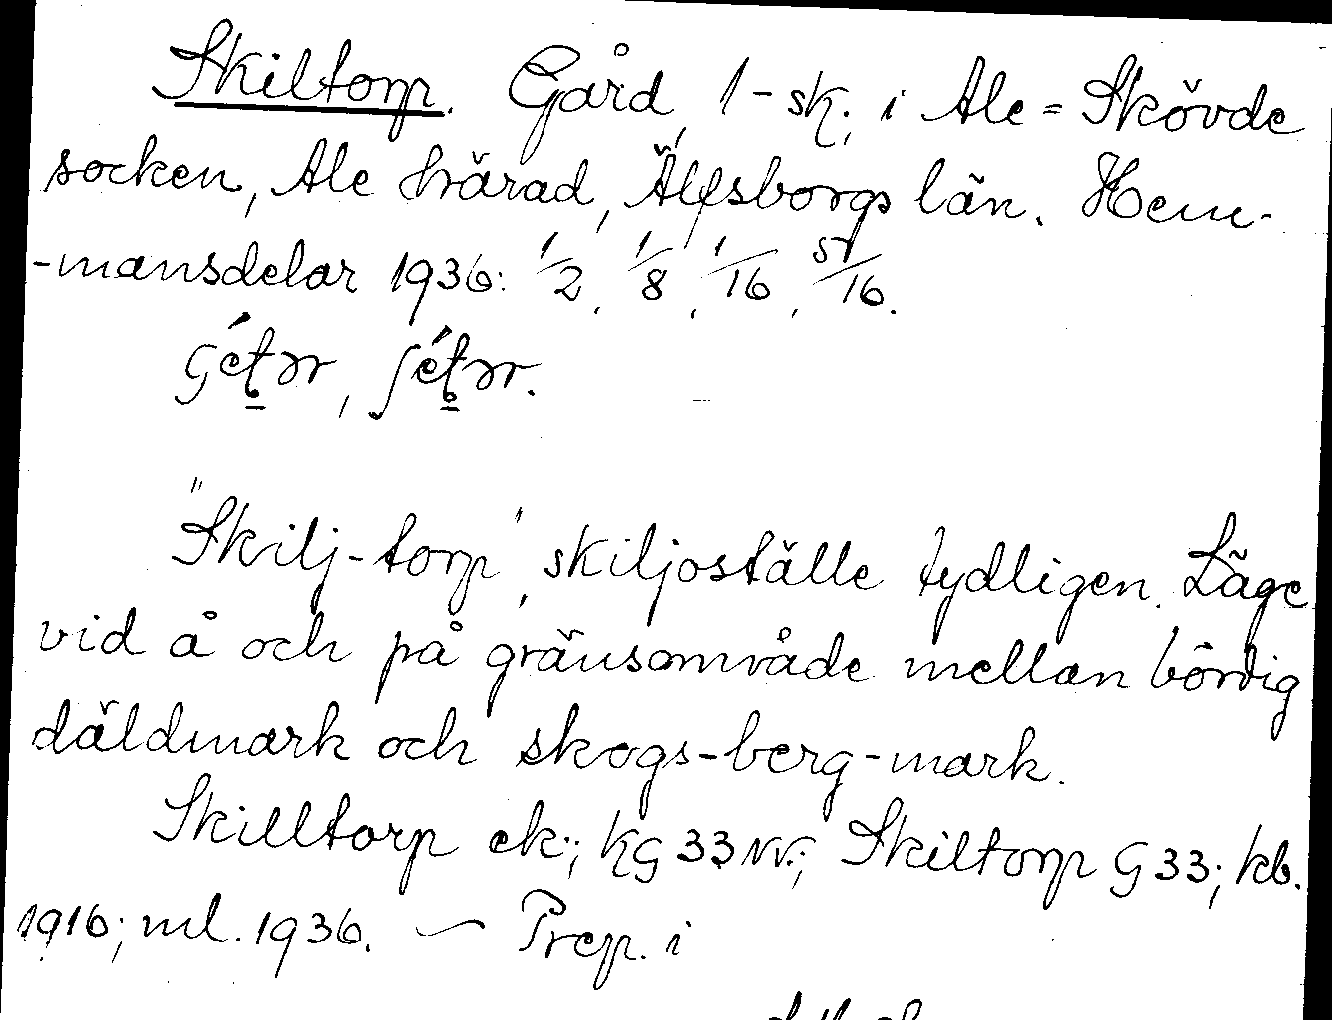 Skiltorp. Gård, 1-sk., i Ale=Skövde
socken, Ale härad, Älfsborgs län. Hem-
-mansdelar 1936: 1/2, 1/8, 1/16, 5/16.
"Skilj-torp", skiljoställe tydligen. Läge
vid å och på gränsområde mellan bördig
däldmark och skogs-berg-mark.
Skilltorp ek; kg 33 NV.; Skiltorp G 33; kb.
1916; ml. 1936. — Prep. i